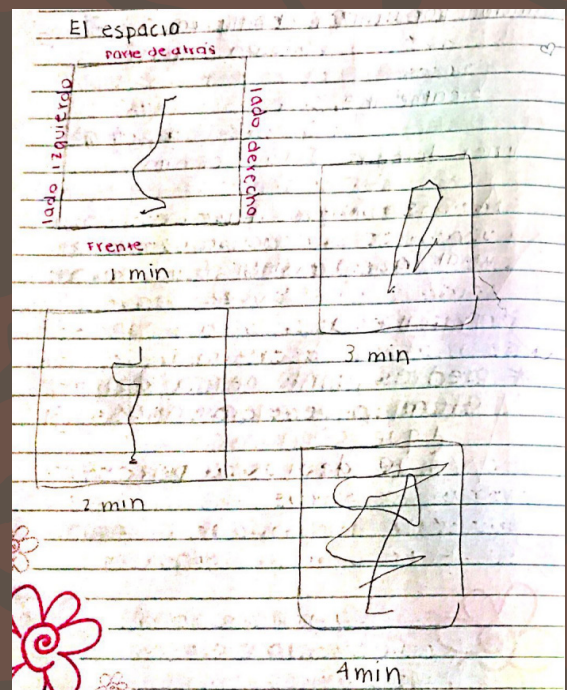 El espacio
Parte de atras
lado izquierdo
lado derecho
Frente
1 min
2 min
3 min
4 min